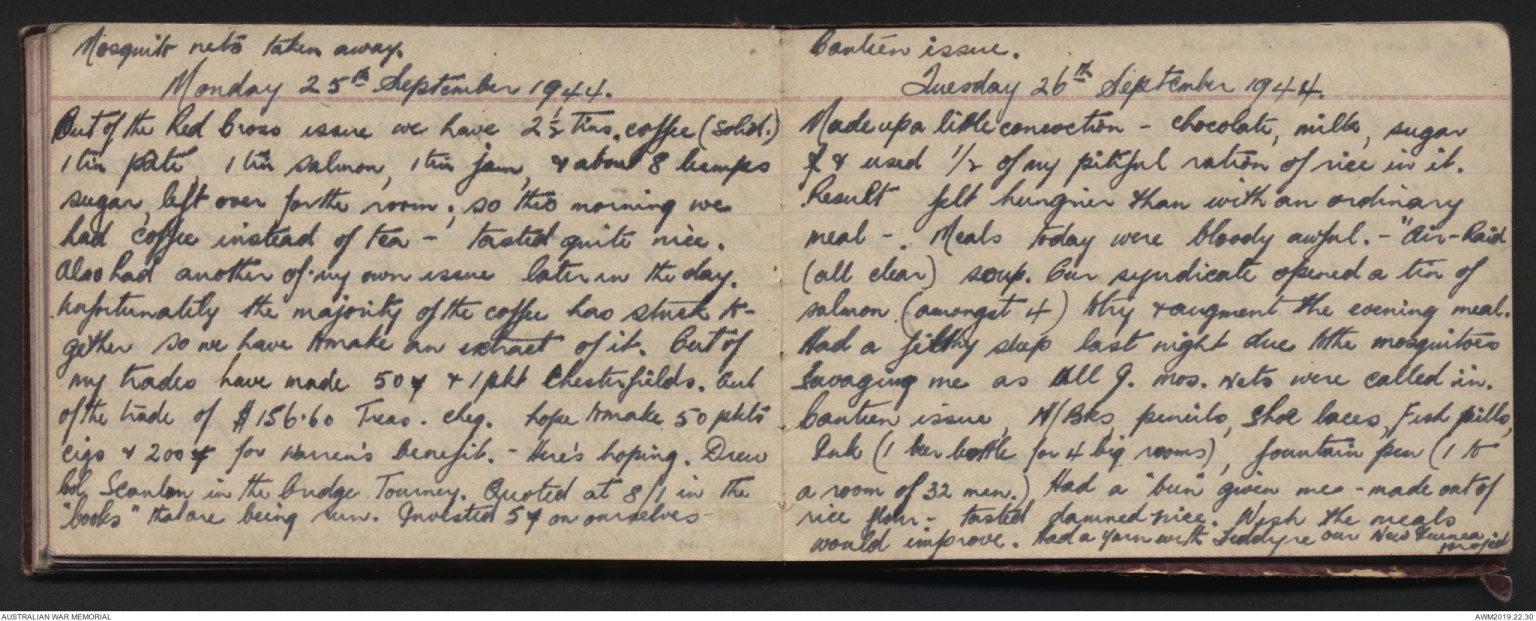 Mosquito nets taken away.
Monday 25th September 1944.
Out of the Red Cross issue we have 2½ tins. coffee (solid.)
1 tin paté, 1 tin salmon, 1 tin jam, & about 8 lumps
sugar, left over for the room; so this morning we
had coffee instead of tea - tasted quite nice.
Also had another of my own issue later in the day.
Unfortunately the majority of the coffee has stuck to-
gether so we have to make an extract of it. Out of
my trades have made 50 & 1 pkt Chesterfields. Out
of the trade of $156.60 Treas. cheq. hope to make 50 pkts
cigs & 200 for Warren's benefit. - Here's hoping. Drew
Col. Scanlon in the bridge Tourney. Quoted at 8/1 in the
"books" that are being run. Invested 5 on ourselves
Canteen issue.
Tuesday 26th September 1944.
Made up a little concoction - chocolate, milk, sugar
& used 1/2 of my pitiful ration of rice in it.
Result felt hungrier than with an ordinary
meal -. Meals today were bloody awful. - "Air-Raid
(all clear) soup. Our syndicate opened a tin of
salmon (amongst 4) to try & augment the evening meal.
Had a filthy sleep last night due to the mosquitoes
savaging me as all J. mos. nets were called in.
Canteen issue, N/Bks, pencils, shoe laces, Fish pills,
Ink (1 beer bottle for 4 big rooms), fountain pen (1 to
a room of 32 men.) Had a "bun" given me - made out of
rice flour - tasted damned nice. Wish the meals
would improve. Had a yarn with Teddy re our New Guinea
project
AUSTRALIAN WAR MEMORIAL
AWM2019.22.30